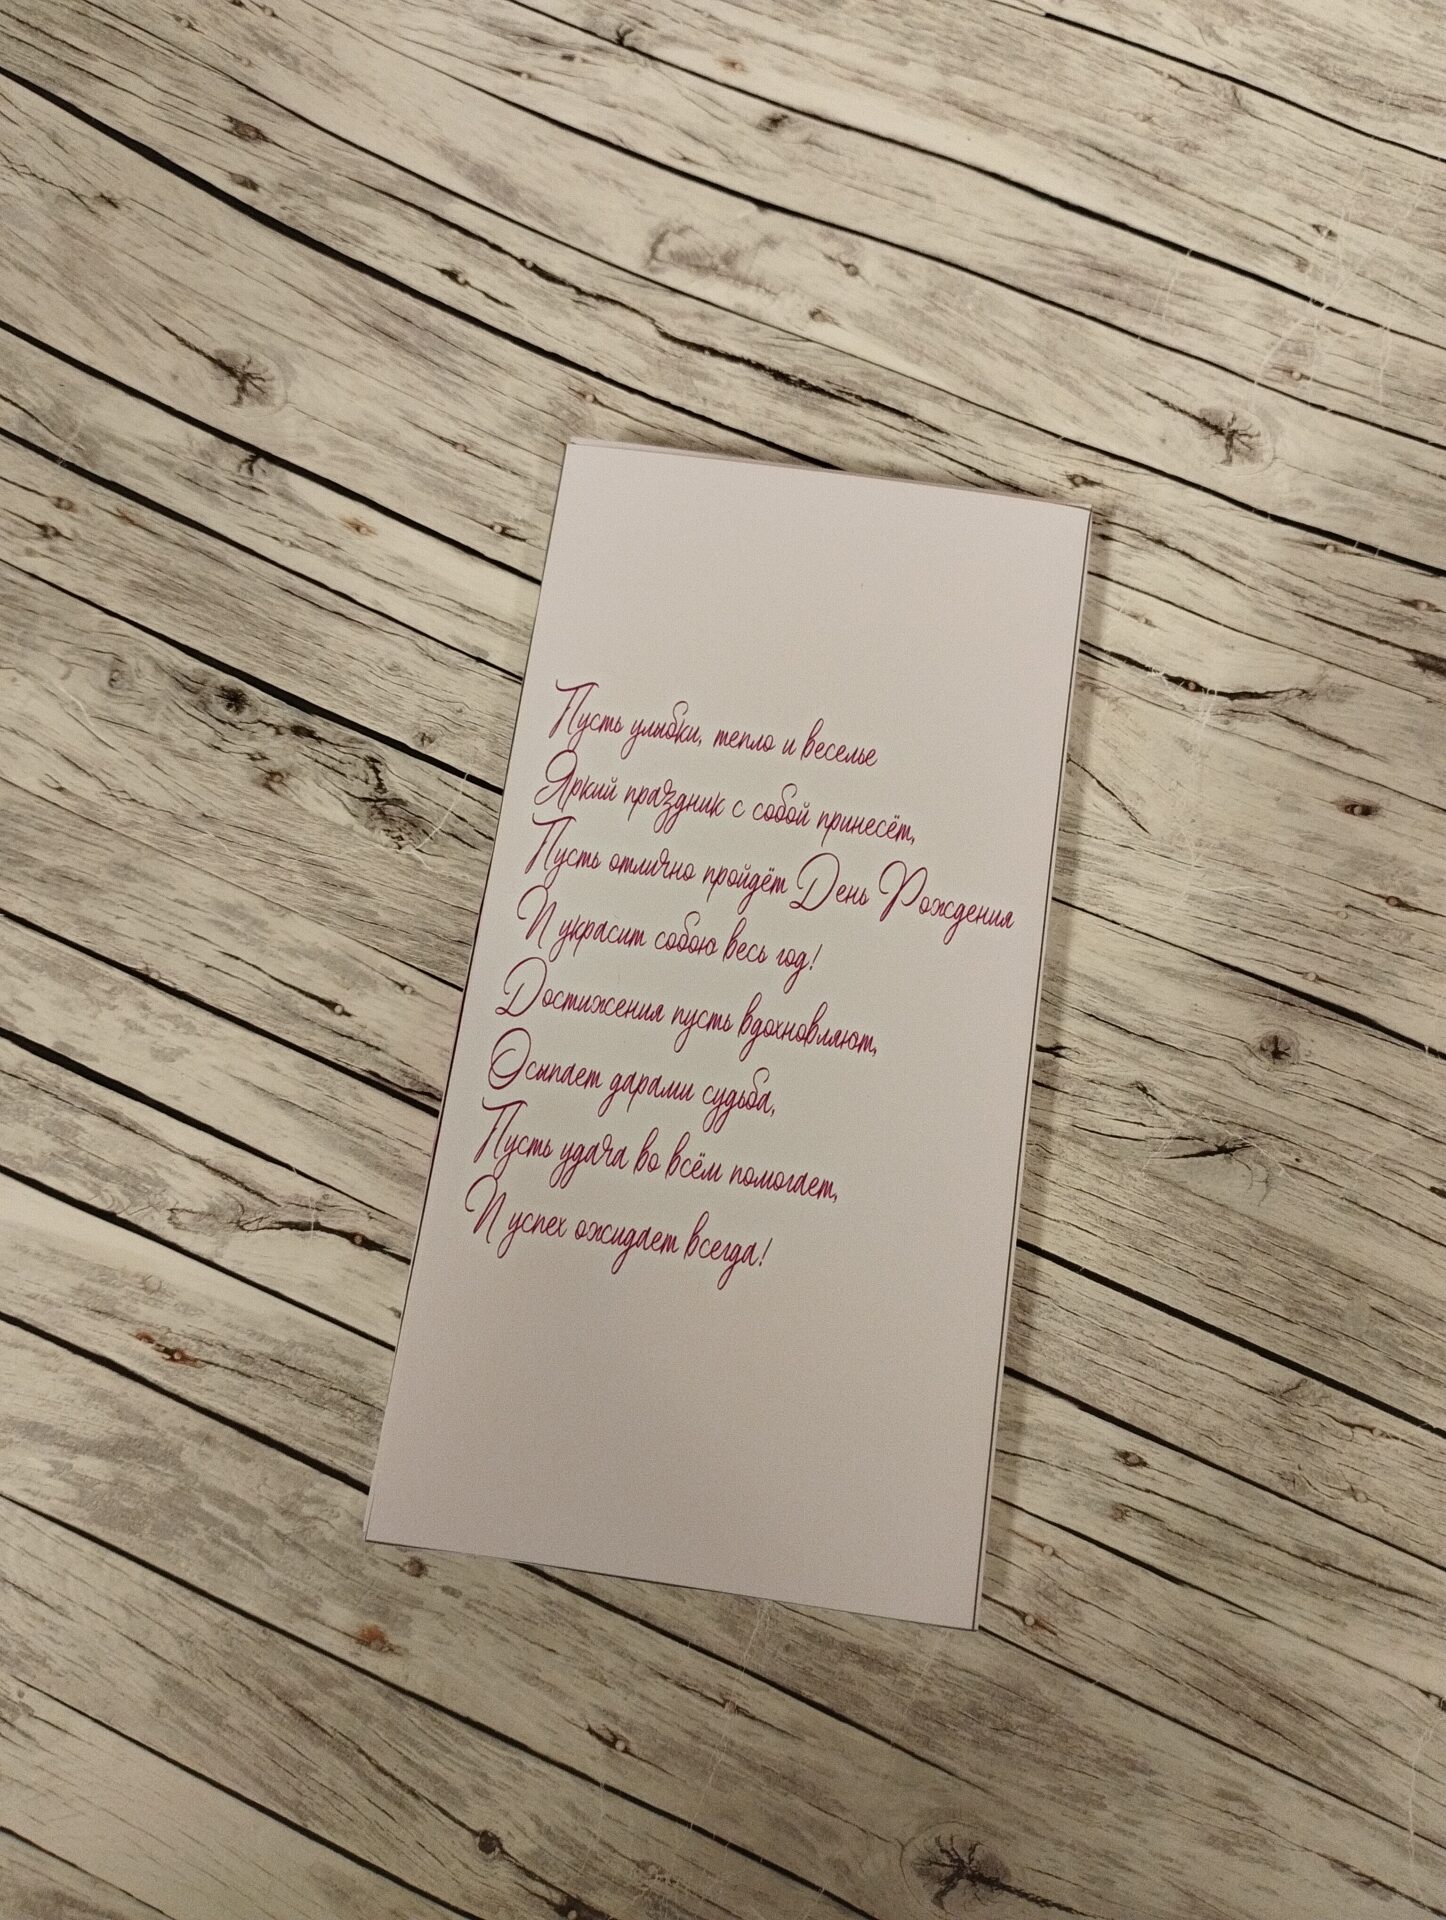 Пусть улыбки, тепло и веселье
Яркий праздник с собой принесёт,
Пусть отлично пройдёт День Рождения
И украсит собою весь год!
Достижения пусть вдохновляют,
Осыпает дарами судьба,
Пусть удача во всём помогает,
И успех ожидает всегда!